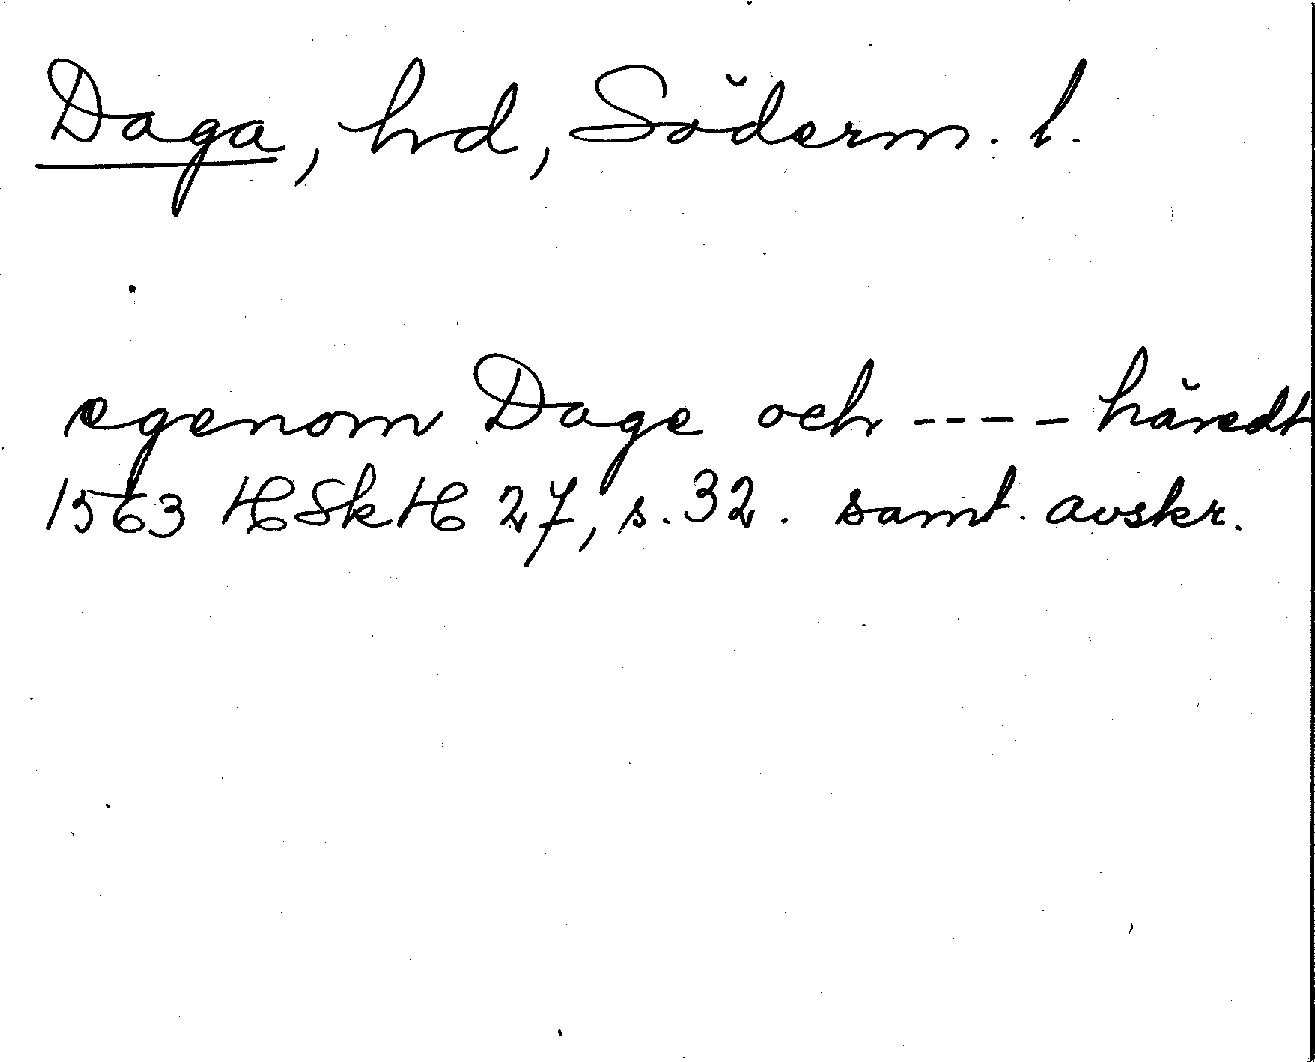 Daga, hd, Söderm. l.
egenom Dage och ---- häredt
1563 HSkH 27, s. 32. samt. avskr.